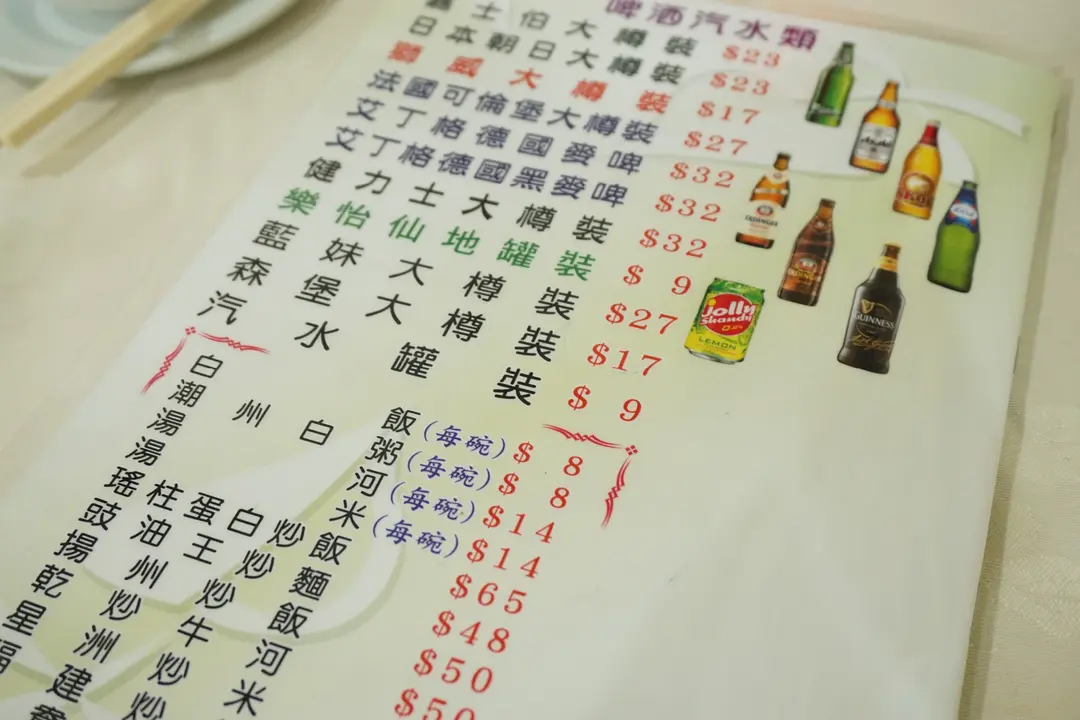 啤酒汽水類
嘉士伯大樽裝 $23
日本朝日大樽裝 $23
獅威大樽裝 $17
法國可倫堡大樽裝 $27
艾丁格德國麥啤 $32
艾丁格德國黑麥啤 $32
健力士大樽裝 $32
樂怡仙地罐裝 $9
藍妹大樽裝 $27
森堡大樽裝 $17
汽水罐裝 $9
白飯(每碗) $8
潮州白粥(每碗) $8
湯河(每碗) $14
湯米(每碗) $14
瑤柱蛋白炒飯 $65
豉油王炒麵 $48
揚州炒飯 $50
乾炒牛河 $50
星洲炒米
福建炒
Jolly Shandy
LEMON
GUINNESS